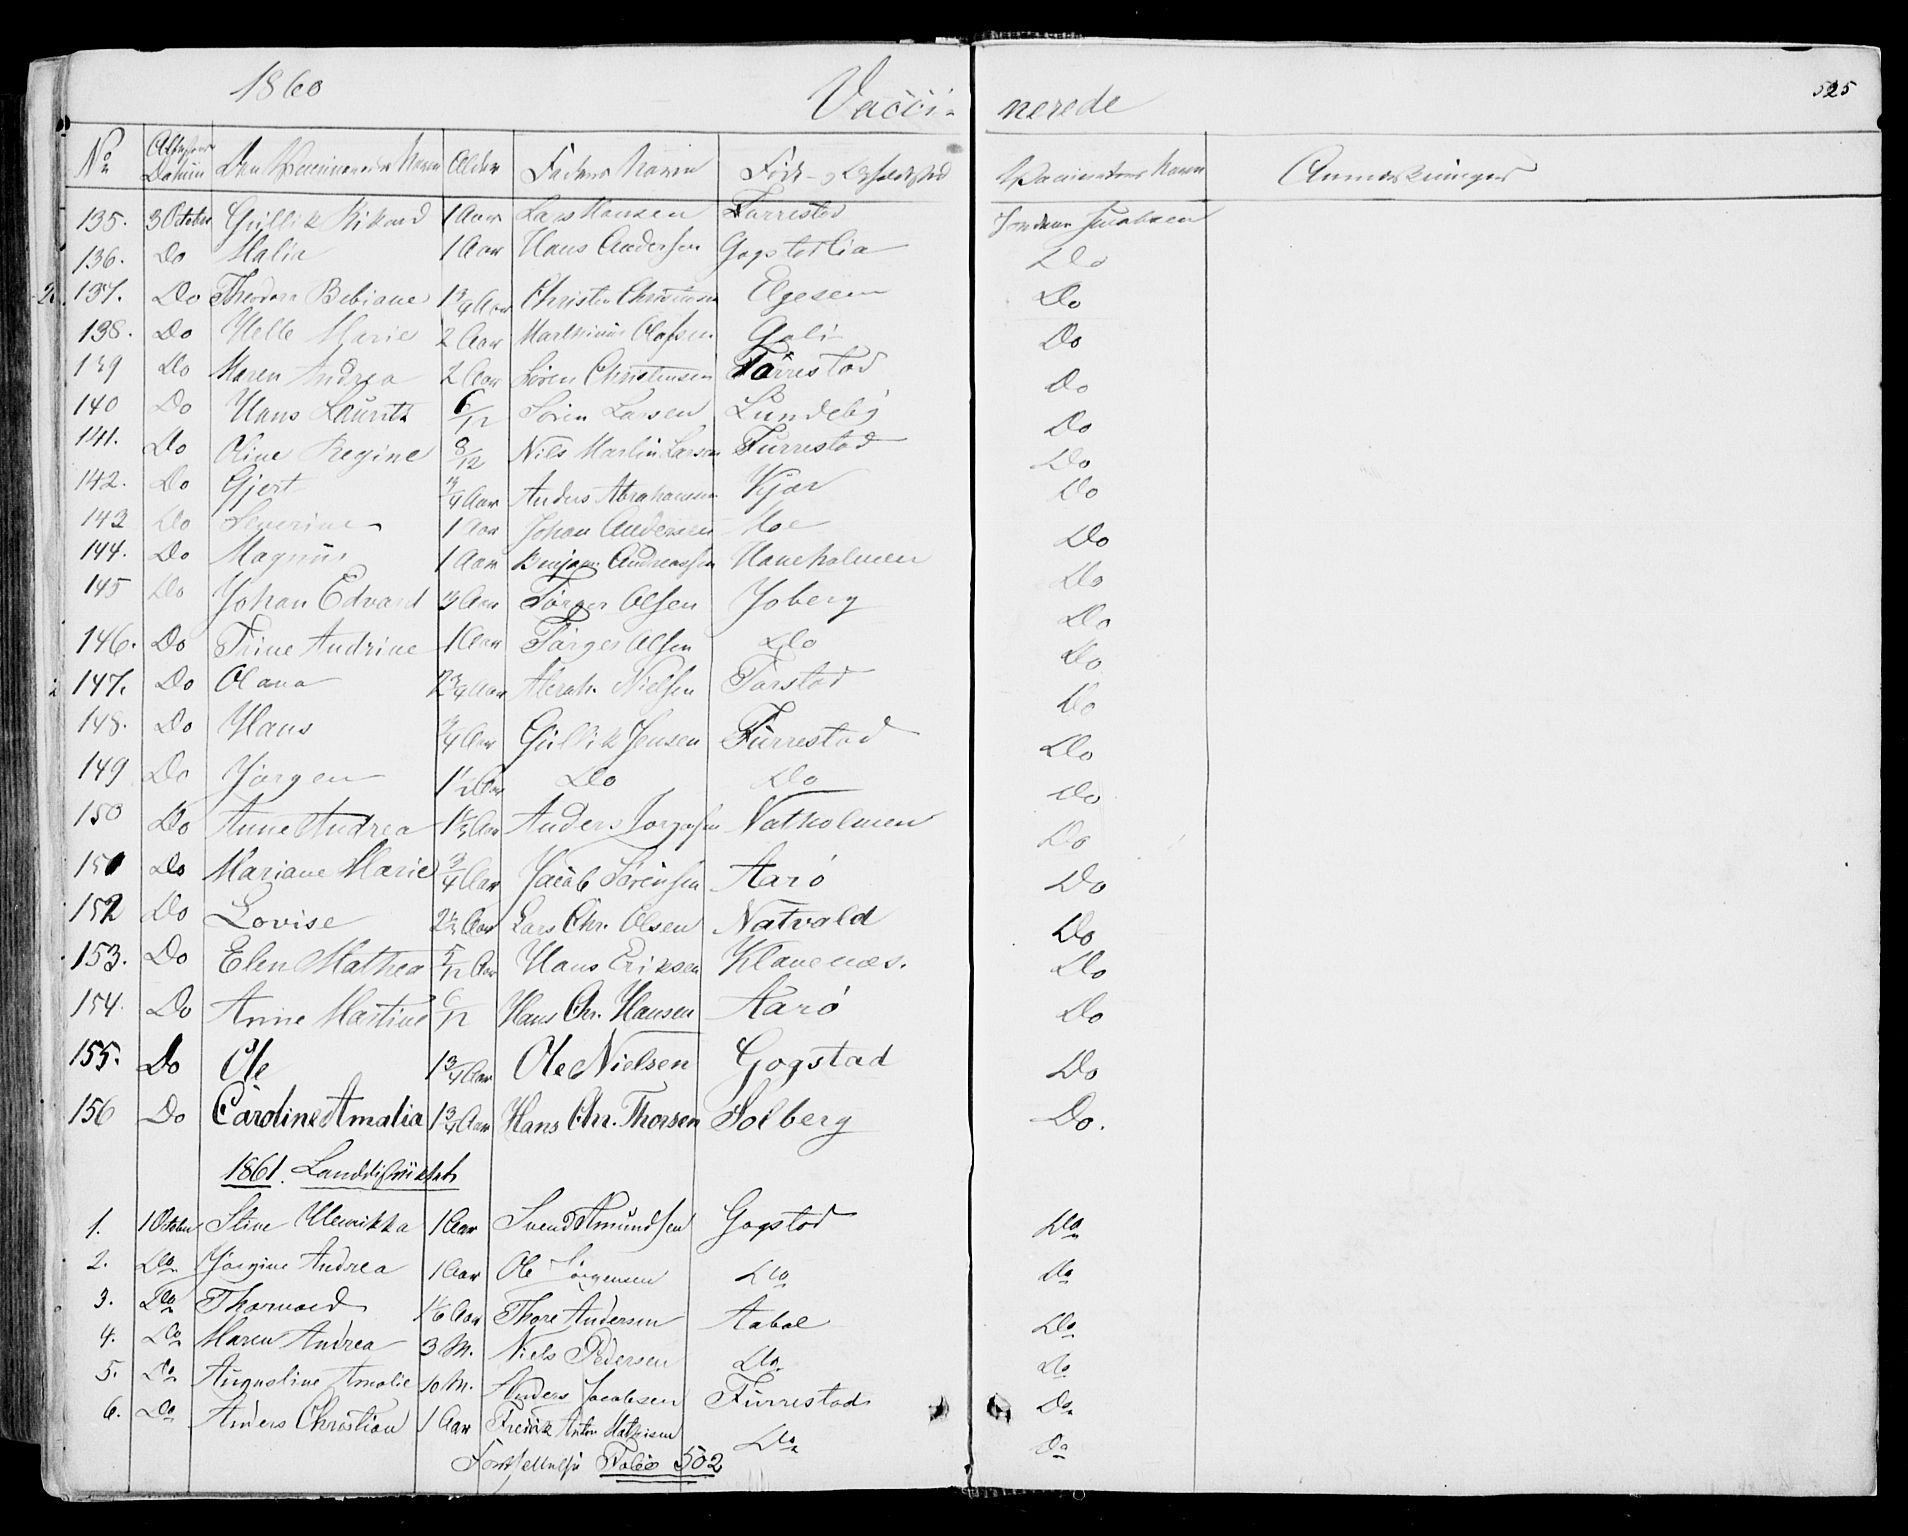 1860 Vacci- nerede 525
No Datum Den Vaccineredes Navn Alder Faders Navn Føde- og Opholdssted Vaccinateurs Navn Anmærkninger
135. 3 October Gullik Rikard 1 Aar Lars Hansen Furrestad Jacobsen
136. Do Malia 1 Aar Hans Andersen Gogstadlia Do
137. Do Theodora Bebiane 1 3/4 Aar Christen Christensen Elgesem Do
138. Do Helle Marie 2 Aar Marthinius Olafsen Gali Do
139 Do Maren Andrea 2 Aar Søren Christensen Furrestad Do
140 Do Hans Lauritz 6/12 Søren Larsen Lundeby Do
141. Do Oline Regine 8/12 Nils Martin Larsen Furrestad Do
142. Do Gjert 3/4 Aar Anders Abrahamsen Kjær Do
143 Do Severine 1 Aar Johan Andersen Moe Do
144. Do Magnus 1 Aar Benjam. Andreassen Haneholmen Do
145 Do Johan Edvard 3 Aar Törger Olsen Joberg Do
146. Do Trine Andrine 1 Aar Törger Olsen Do Do
147. Do Olana 2 3/4 Aar Abrah. Nielsen Tarstad Do
148. Do Hans 3/4 Aar Gullik Jensen Furrestad Do
149 Do Jörgen 1 1/2 Aar Do Do Do
150 Do Anne Andrea 1 1/2 Aar Anders Jorgensen Natholmen Do
151 Do Mariane Marie 3/4 Aar Jacob Sørensen Aarø Do
152 Do Lovise 2 1/2 Aar Lars Chr. Olsen Natvald Do
153. Do Elen Mathea 5/12 Aar Hans Eriksen Klavenæs. Do
154. Do Anne Martine 6/12 Hans Chr. Hansen Aarø Do
155. Do Ole 1 3/4 Aar Ole Nielsen Gogstad Do
156 Do Caroline Amalia 1 3/4 Aar Hans Chr. Thorsen Solberg Do.
1861. Landdistriktet
1. 1 October Stine Henrikka 1 Aar Svend Amundsen Gogstad Do
2. Do Jörgine Andrea 1 Aar Ole Jörgensen Do Do
3. Do Thorvald 1 1/6 Aar Thore Andersen Aabol Do
4. Do Maren Andrea 3 M. Niels Pedersen Do Do
5. Do Augustine Amalie 10 M. Anders Jacobsen Furrestad Do
6. Do Anders Christian 1 Aar Fredrik Anton Mathisen Do Do
Fortsættelse Folio 502